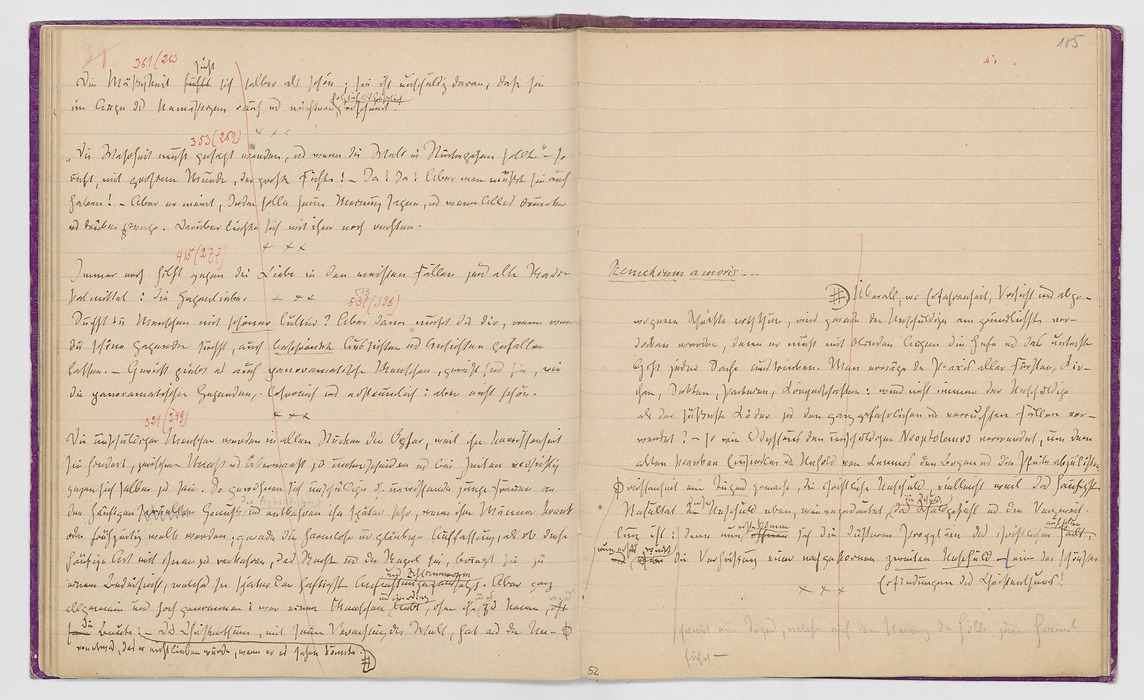 361 (263
sieht
Die Mäßigkeit sich selber als schön; sie ist unschuldig daran, daß sie
folglich als häßlich
im Auge des Unmässigen rauh und nüchtern erscheint.
+ × ×
353 (262)
„Die Wahrheit muß gesagt werden, und wenn die Welt in Stücke gehen sollte“ – so
ruft, mit großem Munde, der große Fichte! – Ja! Ja! Aber man müßte sie auch
haben! – Aber er meint, Jeder solle seine Meinung sagen, und wenn Alles drunter
und drüber gienge. Darüber ließe sich mit ihm noch rechten.
+ × ×
415 (277)
Immer noch hilft gegen die Liebe in den meisten Fällen jenes alte Radi-
kalmittel: die Gegenliebe. + × ×
Suchst du Menschen mit schöner Cultur? Aber dann mußt du dir, wie wenn
du schöne Gegenden suchst, auch beschränkte Aussichten und Ansichten gefallen
lassen. – Gewiß giebt es auch panoramatische Menschen, gewiß sind sie, wie
die panoramatischen Gegenden, lehrreich und erstaunlich: aber nicht schön.
+ × ×
321 (249)
Die unschuldigen Menschen werden in allen Stücken die Opfer, weil ihre Unwissenheit
sie hindert, zwischen Maaß und Übermaaß zu unterscheiden und bei Zeiten vorsichtig
gegen sich selber zu sein. So gewöhnen sich unschuldige d. h. unwissende junge Frauen an
den häufigen Genuß und entbehren ihn später sehr, wenn ihre Männer krank
oder frühzeitig welk werden: gerade die harmlose und gläubige Auffassung, als ob diese
häufige Art mit ihnen zu verkehren, das Recht und die Regel sei, bringt sie zu
einem Bedürfniß, welches sie später den heftigsten Anfechtungen und Schlimmerem aussetzt. Aber ganz
allgemein und hoch genommen: wer einen Menschen und ein Ding liebt, ohne ihn und es zu kennen, wird
die Beute – Das Christenthum, mit seiner Verachtung der Welt, hat aus der Un-
das er nicht lieben würde, wenn er es sehen könnte.
185
Remedium amoris. –
Überall, wo Erfahrenheit, Vorsicht und abge-
wogene Schritte noththun, wird gerade der Unschuldige am gründlichsten ver-
dorben werden, denn er muß mit blinden Augen die Hefe und das unterste
Gift jeder Sache austrinken. Man erwäge die Praxis aller Fürsten, Kir-
chen, Sekten, Parteien, Körperschaften: wird nicht immer der Unschuldige
als der süßeste Köder zu den ganz gefährlichen und verruchten Fällen ver-
wendet? – so wie Odysseus den unschuldigen Neoptolemos verwendet, um dem
alten kranken Einsiedler und Unhold von Lemnos den Bogen und die Pfeile abzulisten.
wissenheit eine Tugend gemacht, die christliche Unschuld, vielleicht weil das häufigste
Resultat der Unschuld eben, wie angedeutet, die Schuld, das Schuldgefühl und die Verzweif-
lung ist: denn nun erst können sich die düsteren Propyläen des christlichen Heils aufthun,
nun erst wirkt die Verheißung einer nachgeborenen zweiten Unschuld – eine der schönsten
Erfindungen des Christenthums!
× × ×
somit eine Tugend, welche auf dem Umweg der Hölle zum Himmel
führt –
52